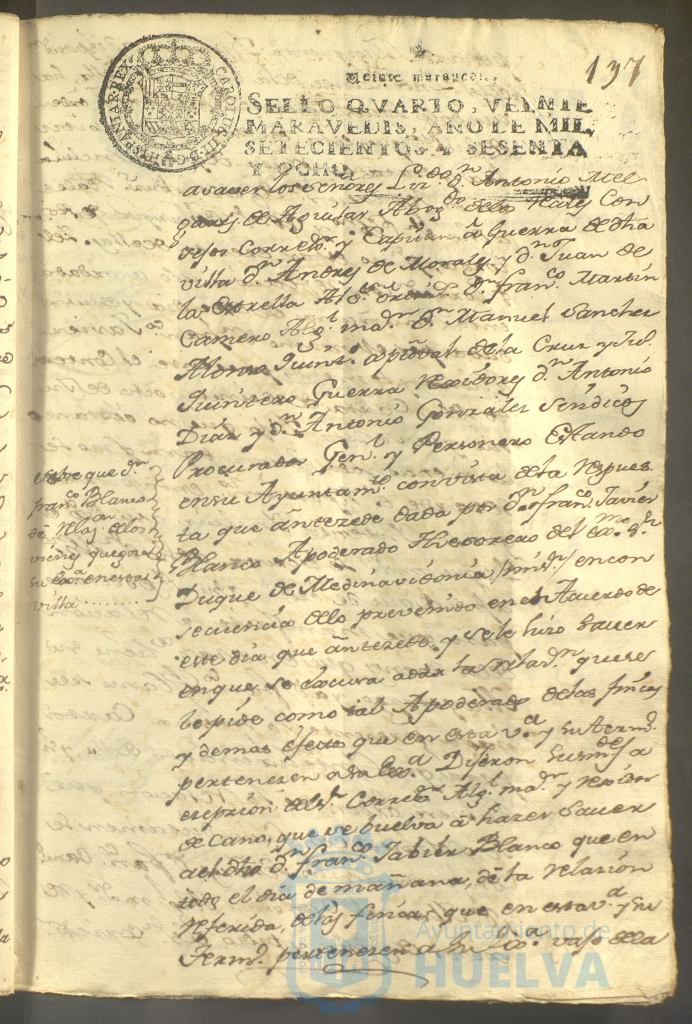 137
CAROLUS III D G HISPANIAR REX
Veinte maravedis.
SELLO QVARTO, VEINTE
MARAVEDIS, AÑO DE MIL
SETECIENTOS Y SESENTA
Y OCHO,
a saver los señores Lizdo dn Antonio Mel
gares de Aguilar Abogdo delos Reales Con
sejos Corredor y Capitan a Guerra de dha
villa dn Andres de Morales y dn Juan de
la Estrella Algs ordin dn franco Martin
Camero Algl mar dn Manuel Sanchez
Alonso Quint de la Cruz y
Quintero Guerra Rexidores dn Antonio
Diaz y dn Antonio Gonzales Sindicos
Procurador Genl y Personero Estando
en su Ayuntamto con vista dela Respues
ta que antezede dada por dn franco Xavier
Blanco Apoderado thesorero del exmo sr
Duque de Medinasidonia, en con
secuencia delo prevenido en el Acuerdo de
este dia que antezede, y se le hizo saver
enque se escusa a dar la relazn que se
le pide como tal Apoderado delas fincas
y demas efecto que en esta va y su termo
pertenezen a su Exa Dijeron sus mdes a
esepcion del sr Corredor Algl mar y rexidor
decano, que se buelva â hazer saver
al dho dn franco Xabier Blanco que en
todo el dia de mañana, dè la relazion
referida, delas fincas que en esta va y su
termo pertenezen a su Exa vajo dela
Sobre que dn
franco Blanco
dè Relazon delos
vienes que goza
su exa en esta
villa........
Ayuntamiento de
HUELVA